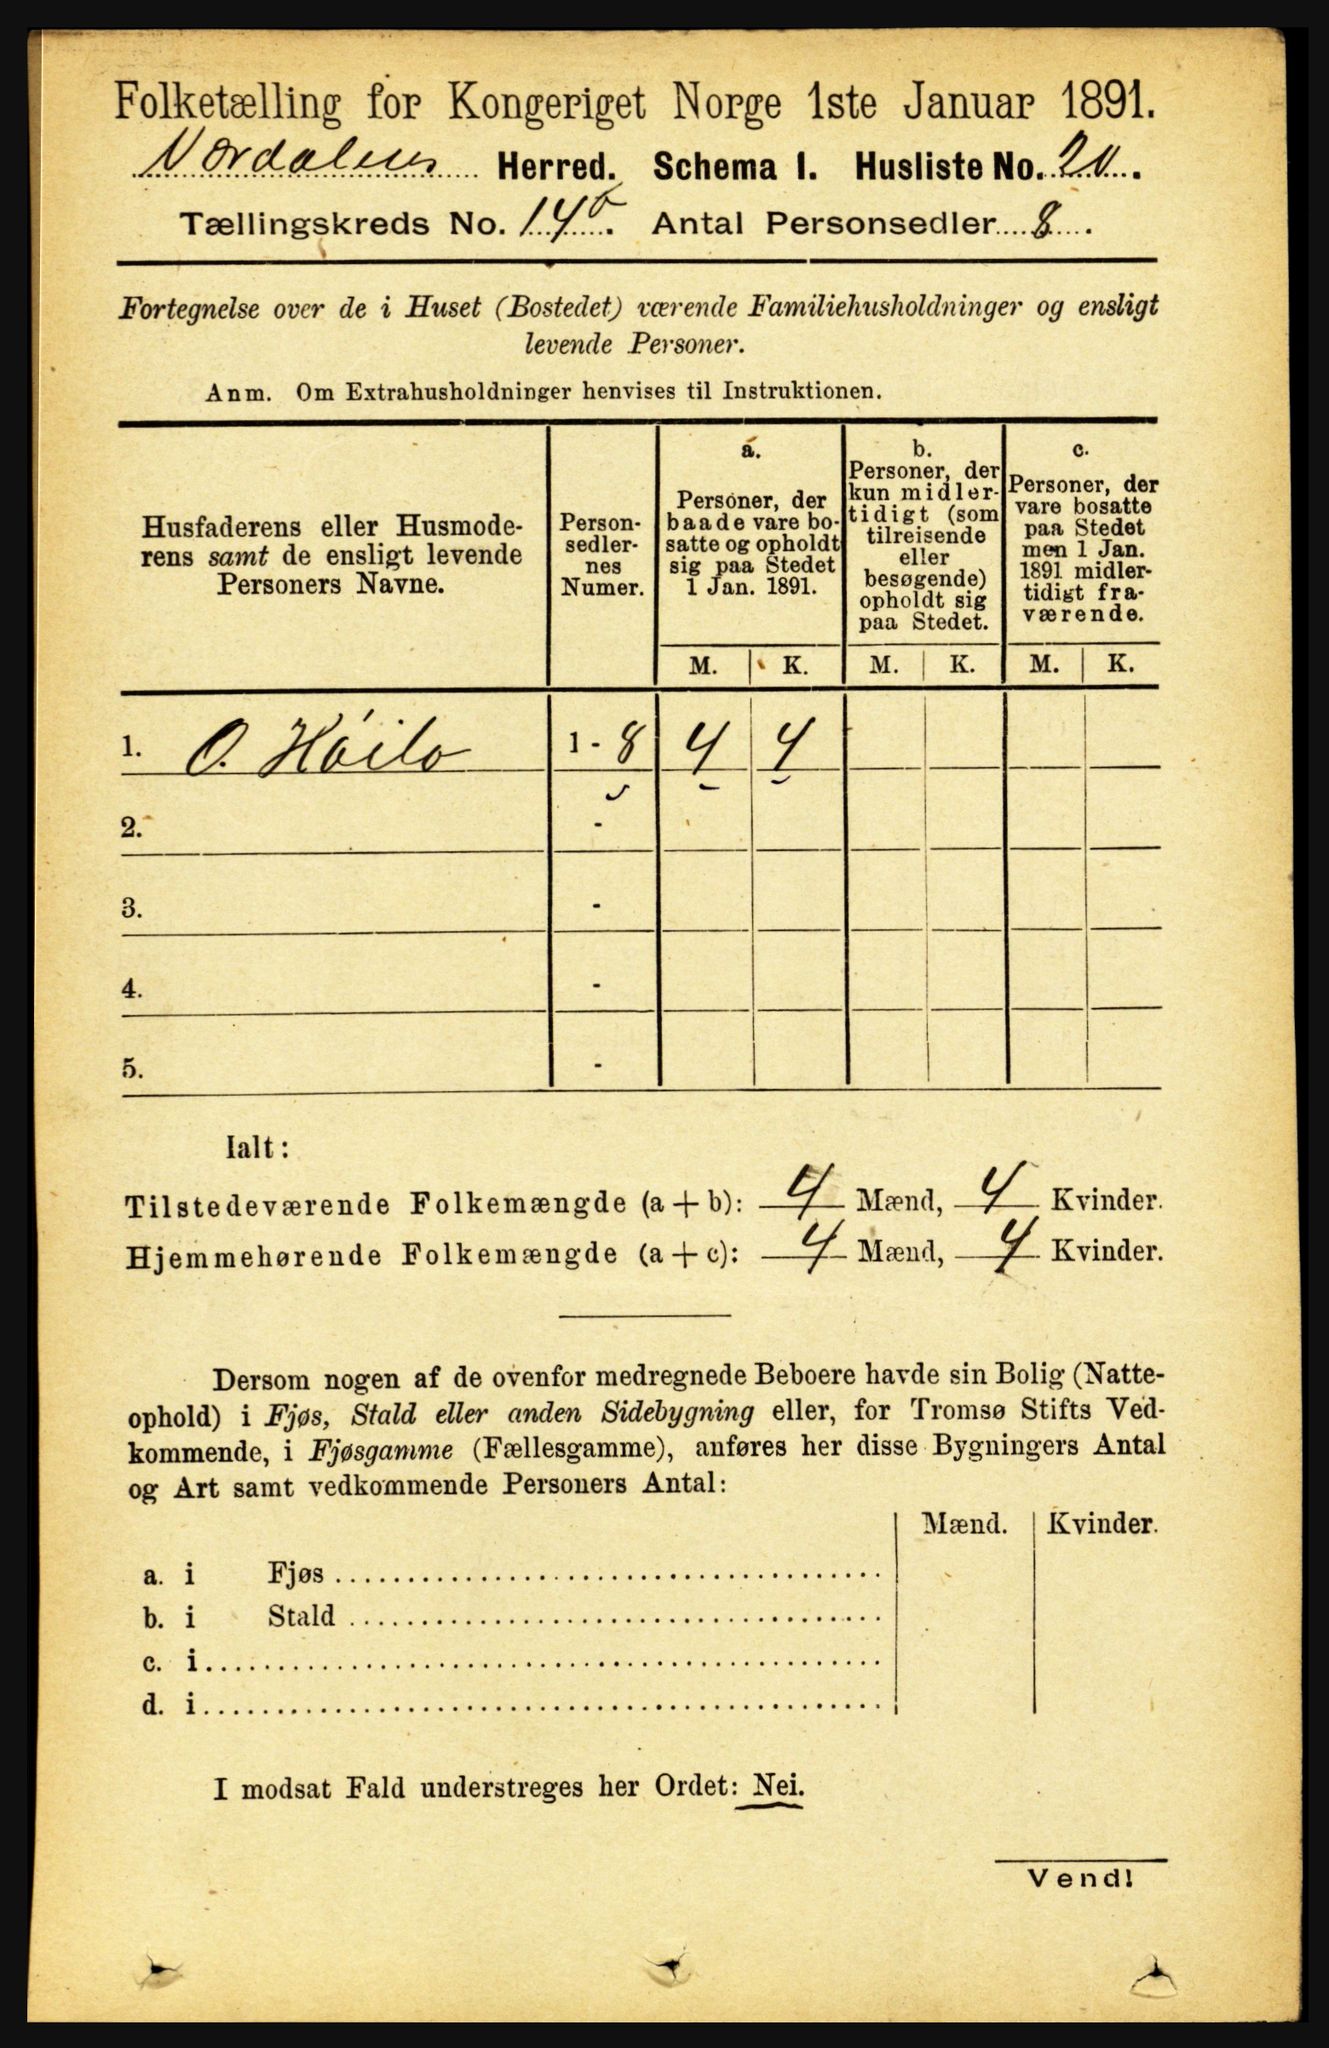 Folketælling for Kongeriget Norge 1ste Januar 1891.
Værdalens Herred. Schema 1. Husliste No. 20.
Tællingskreds No. 14b. Antal Personsedler 8.
Fortegnelse over de i Huset (Bostedet) værende Familiehusholdninger og ensligt
levende Personer.
Anm. Om Extrahusholdninger henvises til Instruktionen.
Husfaderens eller Husmode-
rens samt de ensligt levende
Personers Navne.
Person-
sedler-
nes
Numer.
a.
Personer, der
baade vare bo-
satte og opholdt
sig paa Stedet
1 Jan. 1891.
b.
Personer, der
kun midler-
tidigt (som
tilreisende
eller
besøgende)
opholdt sig
paa Stedet.
c.
Personer, der
vare bosatte
paa Stedet
men 1 Jan.
1891 midler-
tidigt fra-
værende.
M. K. M. K. M. K.
1. O. Höilo 1 - 8 4 4
2. -
3. -
4. -
5. -
Ialt:
Tilstedeværende Folkemængde (a + b): 4 Mænd, 4 Kvinder.
Hjemmehørende Folkemængde (a + c): 4 Mænd, 4 Kvinder.
Dersom nogen af de ovenfor medregnede Beboere havde sin Bolig (Natte-
ophold) i Fjøs, Stald eller anden Sidebygning eller, for Tromsø Stifts Ved-
kommende, i Fjøsgamme (Fællesgamme), anføres her disse Bygningers Antal
og Art samt vedkommende Personers Antal:
Mænd. Kvinder.
a. i Fjøs
b. i Stald
c. i
d. i
I modsat Fald understreges her Ordet: Nei.
Vend!